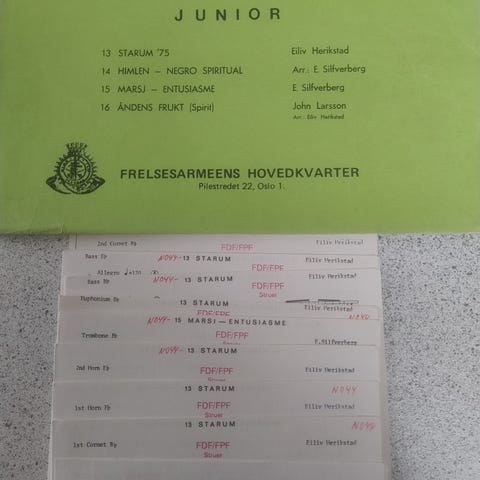 JUNIOR
13 STARUM '75 Eiliv Herikstad
14 HIMLEN – NEGRO SPIRITUAL Arr.: E. Silfverberg
15 MARSJ – ENTUSIASME E. Silfverberg
16 ÅNDENS FRUKT (Spirit) John Larsson
Arr.: Eiliv Herikstad
FRELSESARMEENS HOVEDKVARTER
Pilestredet 22, Oslo 1.
2nd Cornet Bb FDF/FPF Eiliv Herikstad
Bass Bb NO44- 13 STARUM Eiliv Herikstad
Allegro FDF/FPF
Bass Bb NO44- 13 STARUM Eiliv Herikstad
FDF/FPF
Struer
Euphonium Bb 13 STARUM Eiliv Herikstad
FDF/FPF
NO44- 15 MARSJ — ENTUSIASME
Trombone Bb FDF/FPF E.Silfverberg
NO44- 13 STARUM
2nd Horn Eb FDF/FPF Eiliv Herikstad
13 STARUM NO44
1st Horn Eb FDF/FPF Eiliv Herikstad
Struer
13 STARUM NO44
1st Cornet Bb FDF/FPF Eiliv Herikstad
Struer